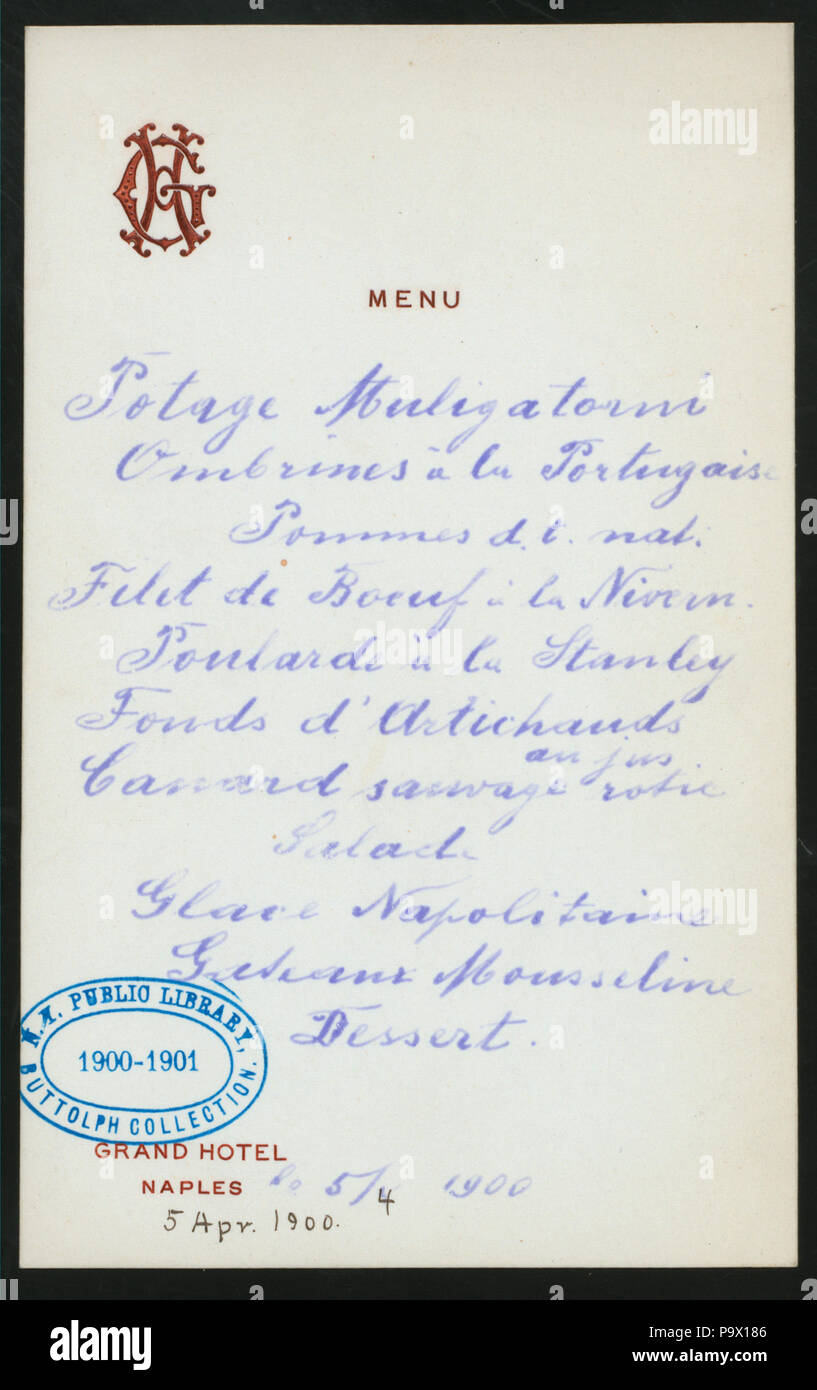 GH
MENU
Potage Muligatorni
Ombrines à la Portugaise
Pommes d. t. nat.
Filet de Boeuf à la Nivern.
Poularde à la Stanley
Fonds d'Artichauds
au jus
Canard sauvage rotie
Salade
Glace Napolitaine
Gateaux Mousseline
Dessert.
N.Y. PUBLIC LIBRARY,
1900-1901
BUTTOLPH COLLECTION.
GRAND HOTEL
NAPLES le 5/4 1900
5 Apr. 1900.
alamy
alamy
alamy
alamy
alamy
Image ID: P9X186
www.alamy.com